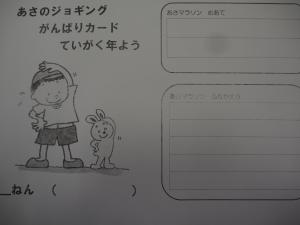 あさのジョギング
がんばりカード
ていがく年よう
ねん (　　　　)
あさマラソン めあて
マラソン ふりかえり